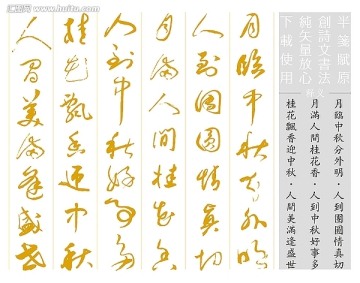 半笺賦原
創詩文書法
純矢量放心
下載使用
释文
月臨中秋分外明·人到團圓情真切
月滿人間桂花香·人到中秋好事多
桂花飄香迎中秋·人間美滿逢盛世
月臨中秋分外明
人到團圓情真切
月滿人間桂花香
人到中秋好事多
桂花飄香迎中秋
人間美滿逢盛世